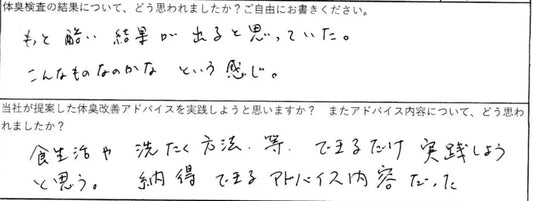 体臭検査の結果について、どう思われましたか？ご自由にお書きください。
もっと酷い結果が出ると思っていた。
こんなものなのかな という感じ。
当社が提案した体臭改善アドバイスを実践しようと思いますか？ またアドバイス内容について、どう思わ
れましたか？
食生活や 洗たく方法、等、できるだけ 実践しよう
と思う。 納得できるアドバイス内容だった